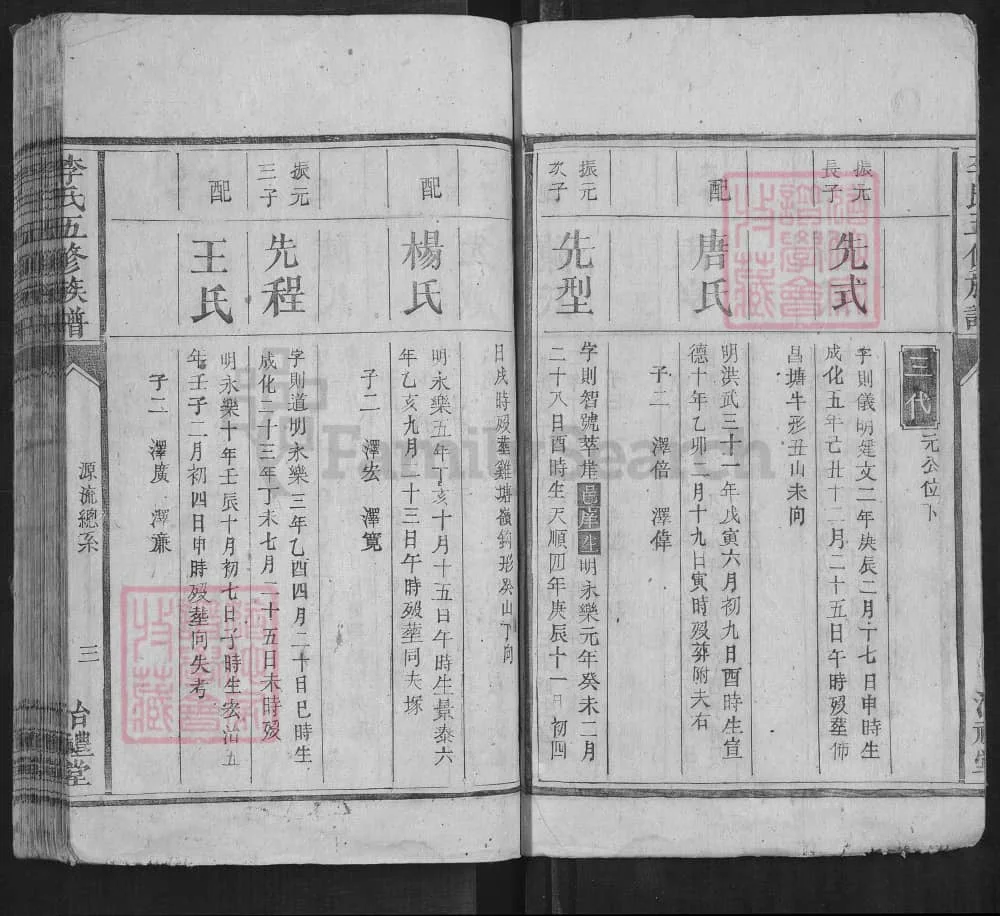 三代
元公位下
振元
長子
先式
字則儀明建文二年庚辰二月十七日申時生
成化五年己丑十二月二十五日午時殁塟佈
昌塘牛形丑山未向
配
唐氏
明洪武三十一年戊寅六月初九日酉時生宣
德十年乙卯 月十九日寅時殁莽附夫右
子二 澤倍 澤偉
振元
次子
先型
字則智號萃 邑庠生明永樂元年癸未二月
二十八日酉時生天順四年庚辰十一月初四
日戌時殁塟雞塘嶺 形癸山丁向
配
楊氏
明永樂五年丁亥十月十五日午時生景泰六
年乙亥九月二十三日午時殁塟同夫塚
子二 澤宏 澤寬
振元
三子
先程
字則道明永樂三年乙酉四月二十日巳時生
成化二十三年丁未七月二十五日未時殁
配
王氏
明永樂十年壬辰十月初七日子時生宏治五
年壬子二月初四日申時殁塟向失考
子二 澤廣 澤廉
李氏五修族譜
源流總系
三
FamilySearch